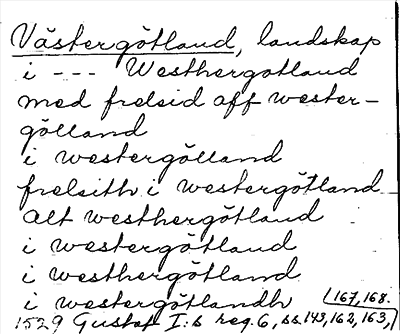 Västergötland, landskap
i --- Westhergotland
med frelsid aff wester-
gölland
i westergölland
frelsith i westergötland
alt westhergötland
i westergötland
i westhergötland
i westergötlandh (167, 168.
1529 Gustaf I:s reg. 6, ss. 143, 162, 163,)